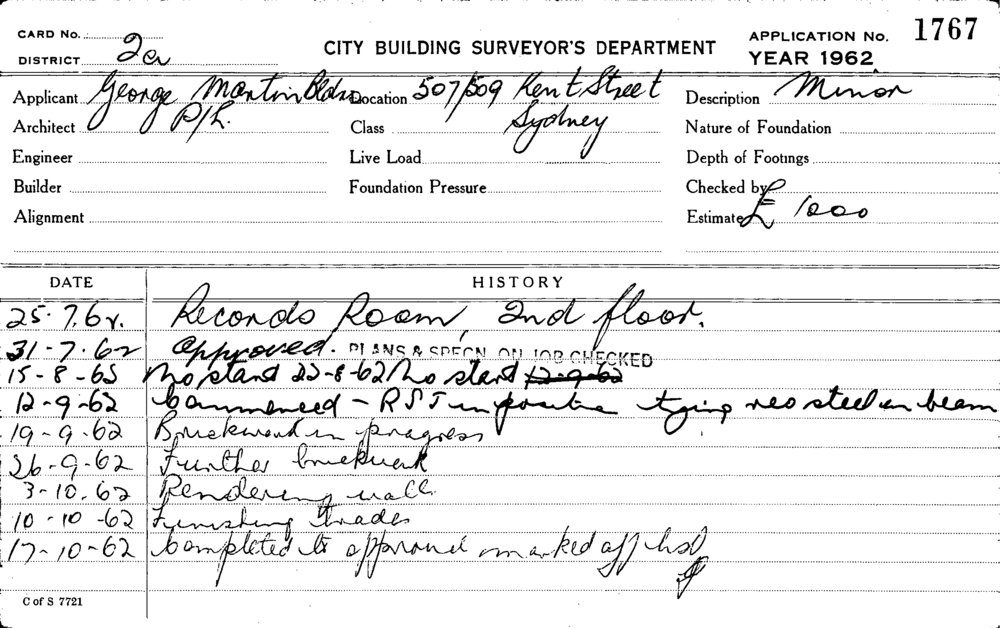 CARD No.
DISTRICT 2a
CITY BUILDING SURVEYOR'S DEPARTMENT
APPLICATION No. 1767
YEAR 1962
Applicant George Martin Bldrs P/L.
Location 507/509 Kent Street Sydney
Description Minor
Architect
Class
Nature of Foundation
Engineer
Live Load
Depth of Footings
Builder
Foundation Pressure
Checked by
Alignment
Estimate £ 1000
DATE HISTORY
25.7.62. Records Room, 2nd floor.
31-7-62 Approved. PLANS & SPECN. ON JOB CHECKED
15-8-62 No start 22-8-62 No start 12-9-62
12-9-62 Commenced - RSJ in position tying reo steel in beam
19-9-62 Brickwork in progress
26-9-62 Further brickwork
3-10.62 Rendering wall
10-10-62 Finishing trades
17-10-62 Completed to approval marked off
C of S 7721